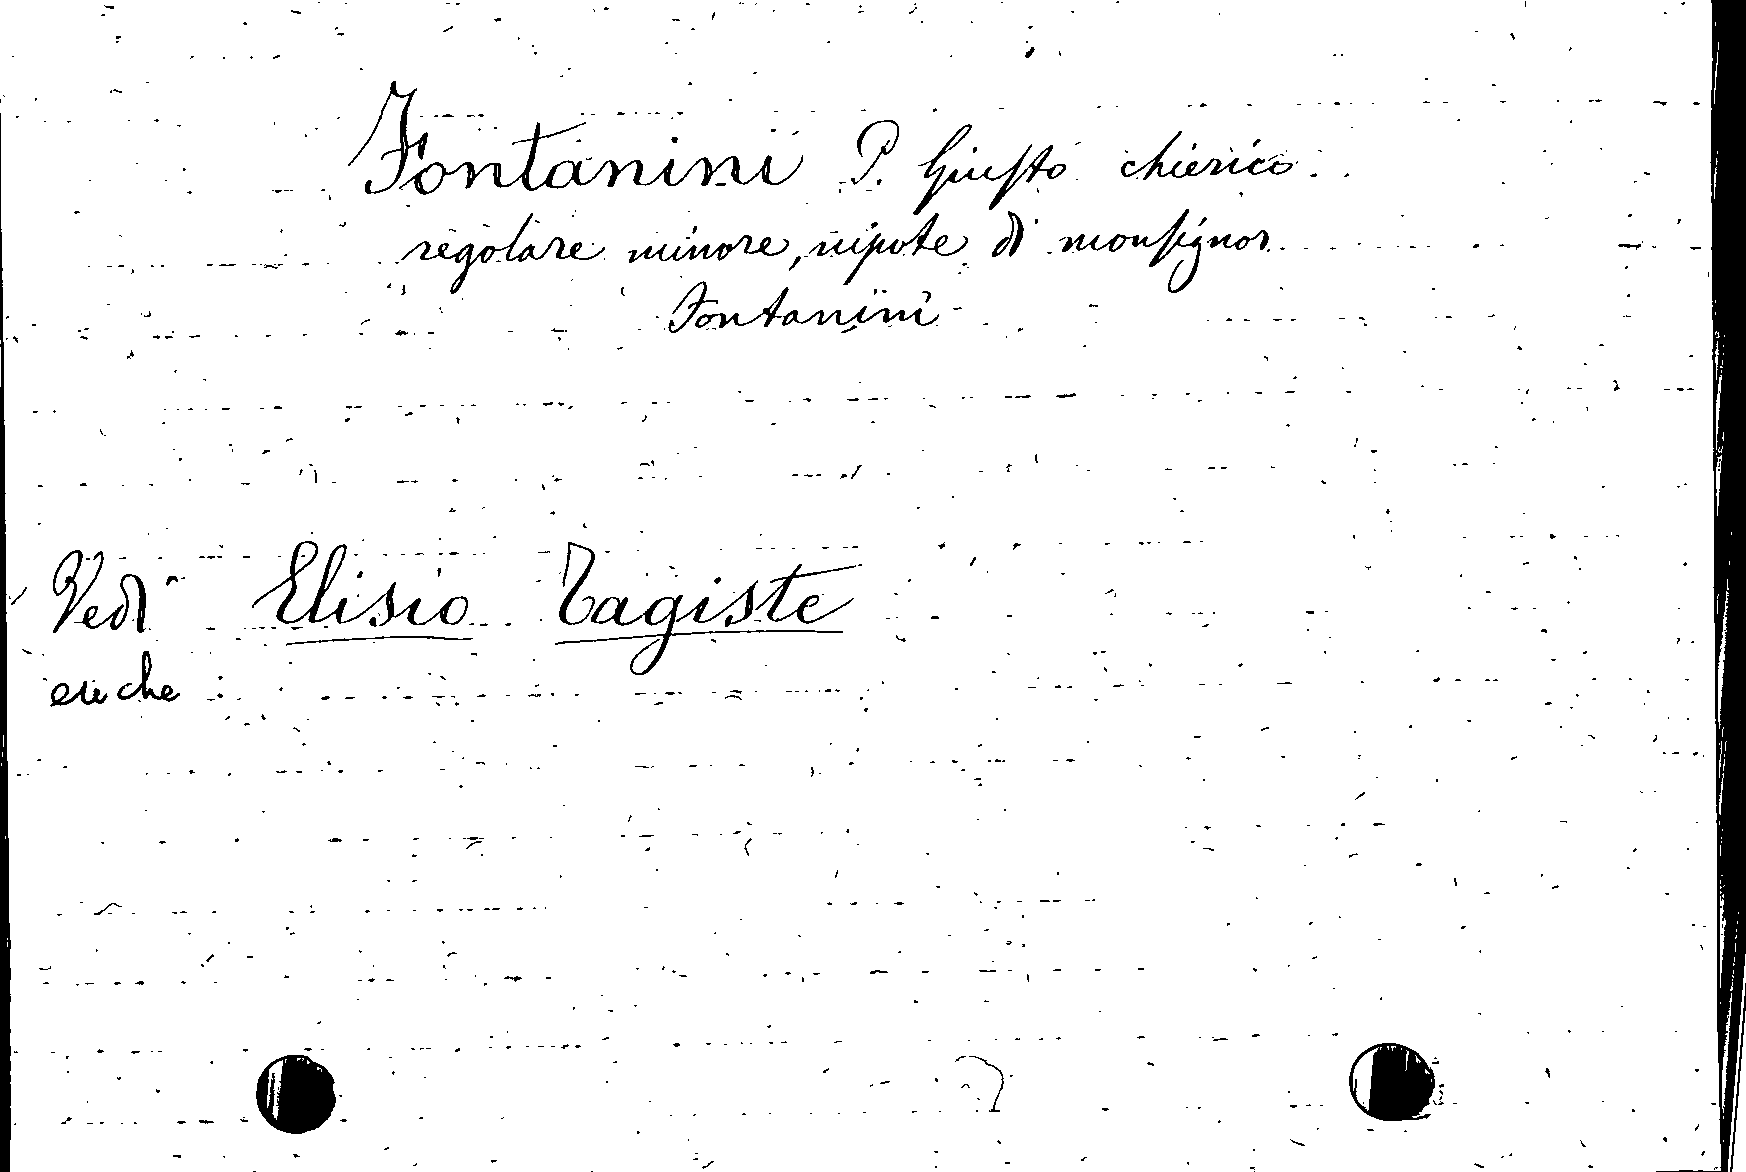 Fontanini P. Giusto chierico
regolare minore, nipote di monsignor
Fontanini
Vedi Elisio Tagiste
anche